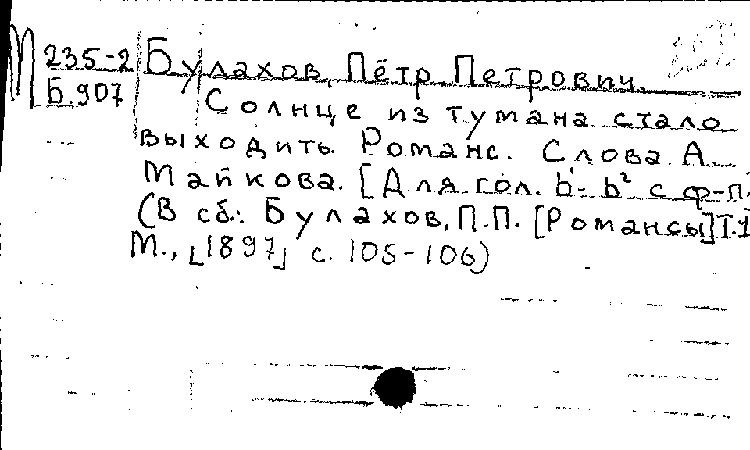 М 235-2 Булахов, Пётр Петрович.
Б 907
Солнце из тумана стало
выходить. Романс. Слова А.
Майкова. [Для гол. b¹-b² с ф-п.
(В сб.: Булахов, П.П. [Романсы] Т.1
М., [1897] с. 105-106)